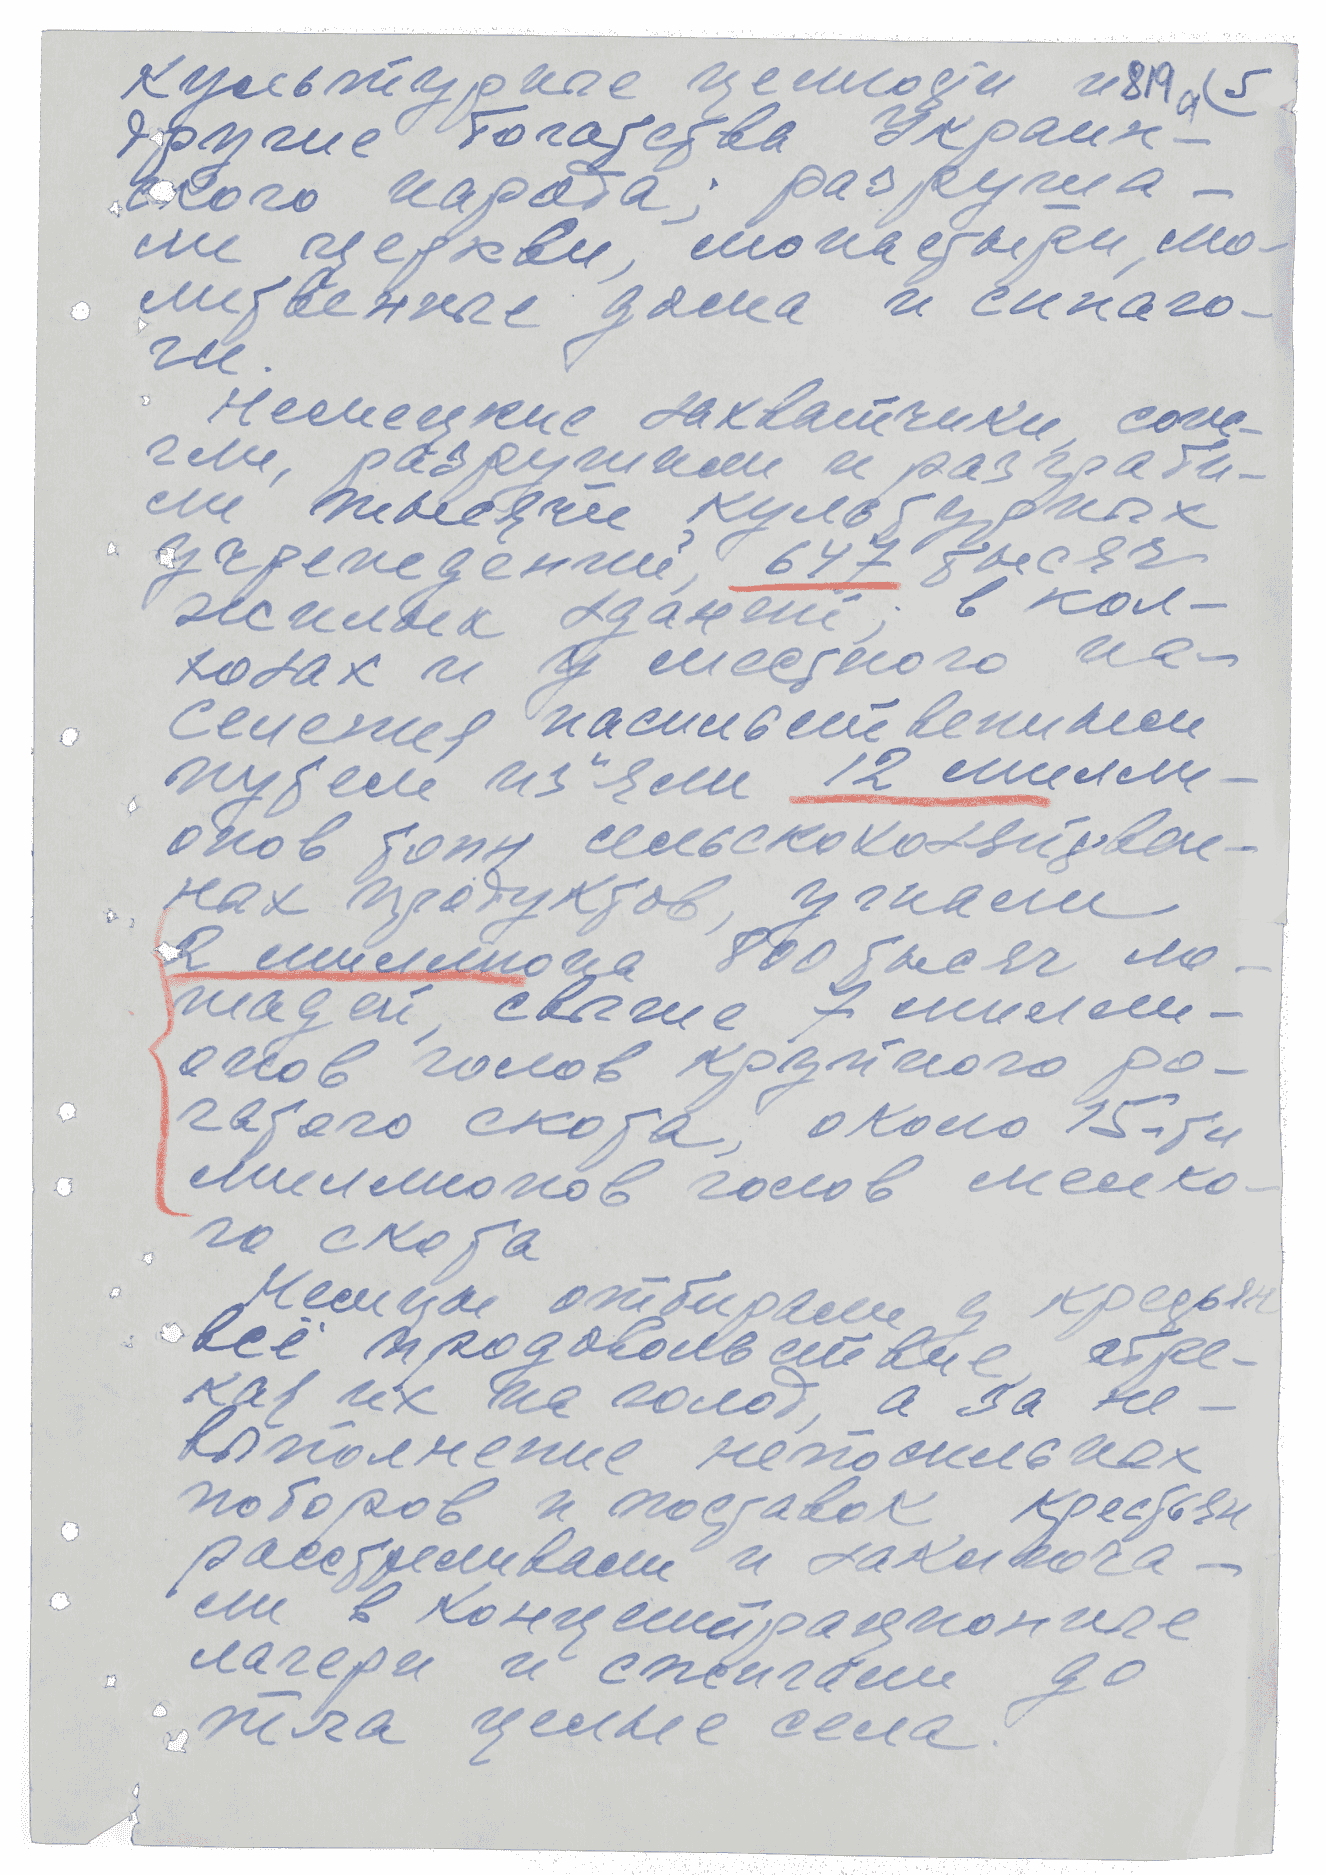 культурные ценности и 819а (5
другие богатства Украин-
ского народа; разруша-
ли церкви, монастыри, мо-
литвенные дома и синаго-
ги.
Немецкие захватчики, сож-
гли, разрушили и разграби-
ли тысячи культурных
учреждений, 647 тысяч
жилых зданий; в кол-
хозах и у местного на-
селения насильственным
путем из"яли 12 милли-
онов тонн сельскохозяйствен-
ных продуктов, угнали
2 миллиона 800 тысяч ло-
шадей, свыше 7 милли-
онов голов крупного ро-
гатого скота, около 15-ти
миллионов голов мелко-
го скота
Немцы отбирали у крестьян
всё продовольствие, обре-
кая их на голод, а за не-
выполнение непосильных
поборов и поставок крестьян
расстреливали и заключа-
ли в концентрационные
лагери и сжигали до
тла целые села.